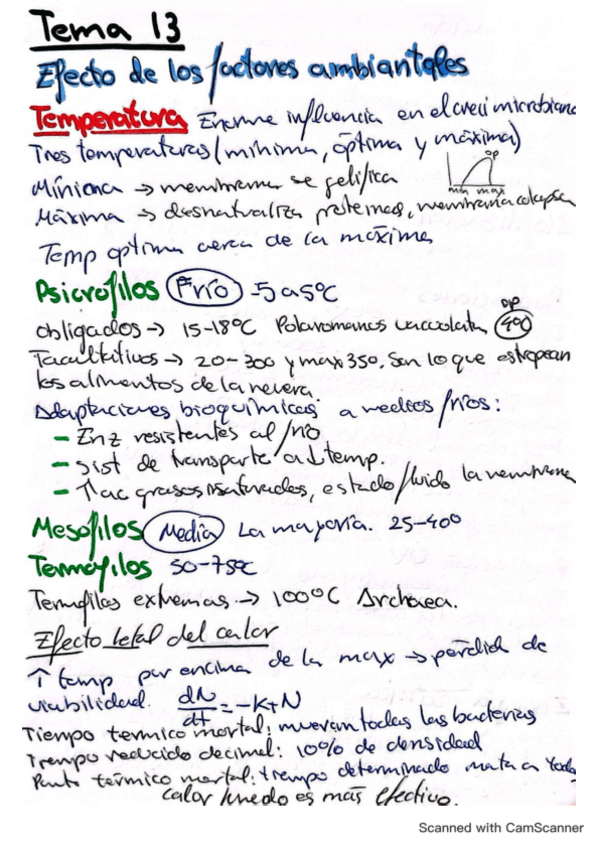 Tema 13
Efecto de los factores ambientales
Temperatura Enorme influencia en el creci microbiano
Tres temperaturas (mínima, óptima y máxima)
op
min max
Mínima → membrana se gelifica
Máxima → desnaturaliza proteinas, membrana colapsa
Temp optima cerca de la máxima
Psicrofilos (Frío) -5 a 5ºC
op
obligados → 15-18ºC Polaromonas vacuolata 4ºC
Facultativos → 20-30º y max 35º. Son lo que estropean
los alimentos de la nevera.
Adaptaciones bioquímicas a medios fríos:
- Enz resistentes al frío
- Sist de transporte a ↓ temp.
- ↑ ac grasos insaturados, estado fluido la membrana
Mesofilos (Media) La mayoría. 25-40º
Termofilos 50-75ºC
Termofilos extremos → 100ºC Archaea.
Efecto letal del calor
↑ temp por encima de la max → pérdida de
viabilidad. dN/dt = -K+N
Tiempo termico mortal: mueran todas las bacterias
Tiempo reducido decimal: 10% de densidad
Punto térmico mortal: tiempo determinado mata a toda
calor humedo es más efectivo.
Scanned with CamScanner